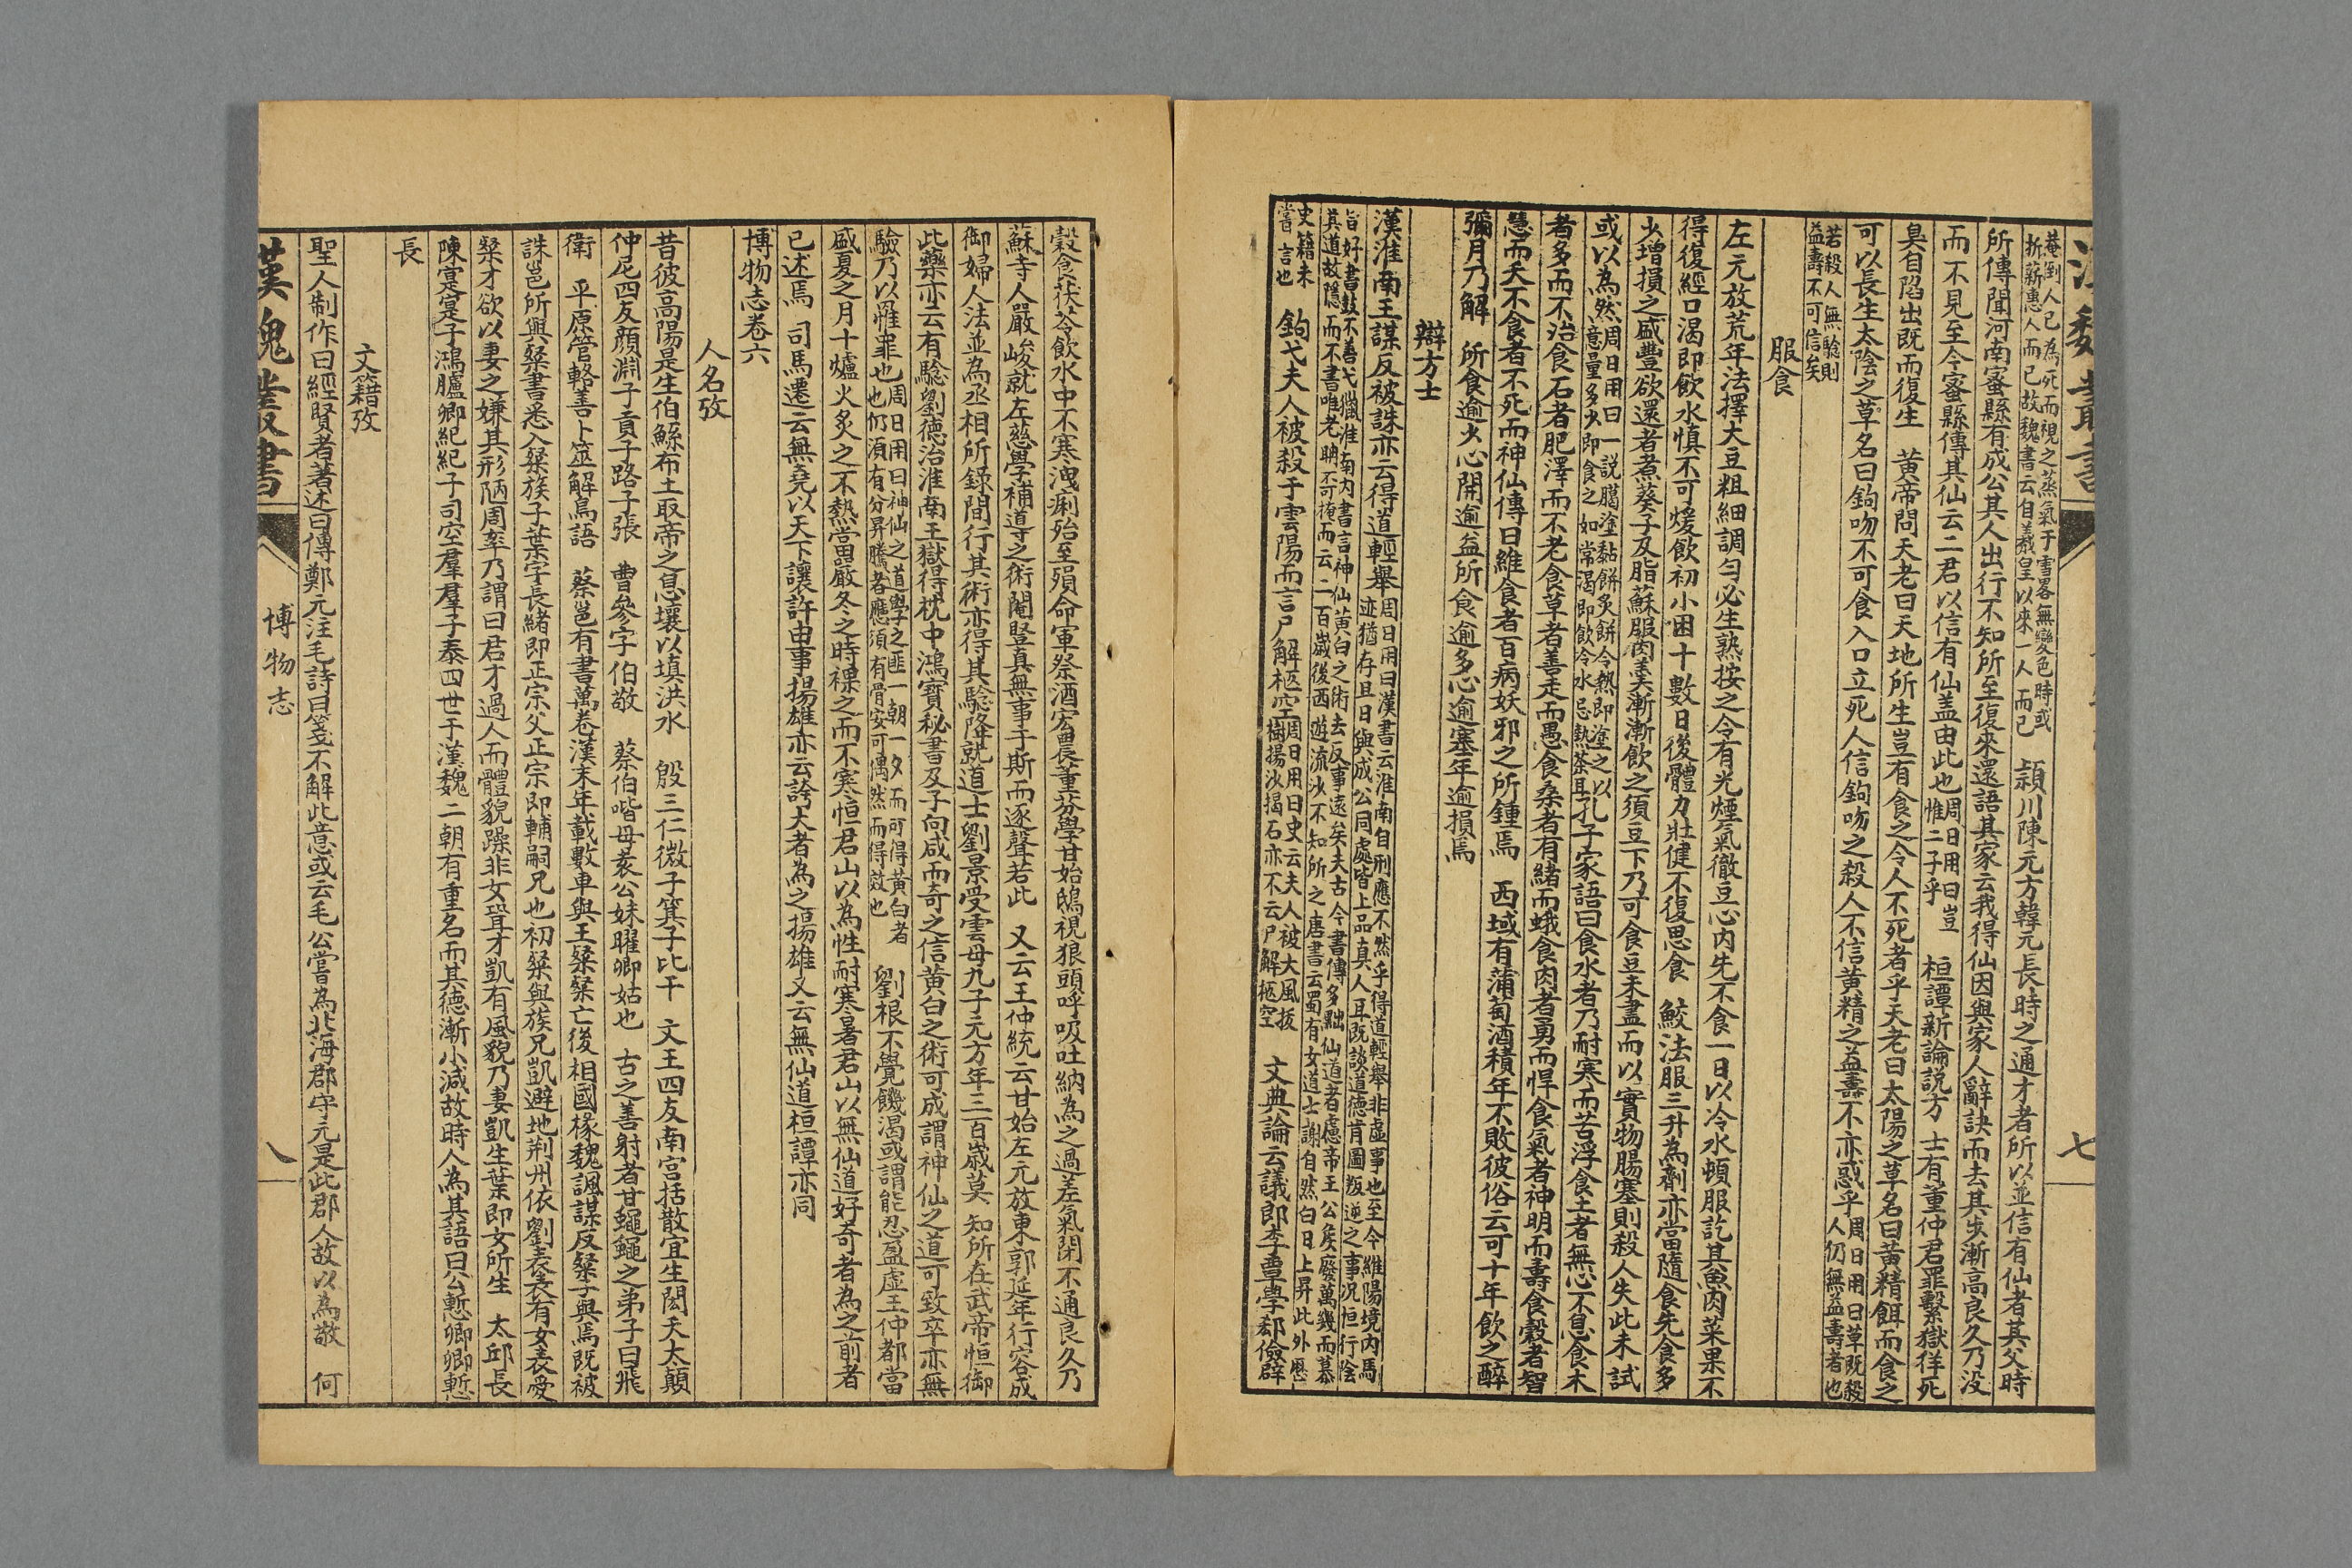 漢魏叢書
七
菴倒人已為死而視之蒸氣于雪畧無變色時或
折薪惠人而已故魏書云自羲皇以來一人而已
潁川陳元方韓元長時之通才者所以並信有仙者其父時
所傳聞河南蜜縣有成公其人出行不知所至復來還語其家云我得仙因與家人辭訣而去其步漸高良久乃没
而不見至今蜜縣傳其仙云二君以信有仙盖由此也周日用曰豈惟二子乎 桓譚新論説方士有董仲君罪繫獄徉死
臭自陷出既而復生 黄帝問天老曰天地所生豈有食之令人不死者乎天老曰太陽之草名曰黄精餌而食之
可以長生太陰之草名曰鉤吻不可食入口立死人信鉤吻之殺人不信黄精之益壽不亦惑乎周日用曰草既殺人仍無益壽者也
若殺人無騐則
益壽不可信矣
服食
左元放荒年法擇大豆粗細調勻必生熟按之令有光煙氣徹豆心内先不食一日以冷水頓服訖其魚肉菜果不
得復經口渴即飲水慎不可煖飲初小困十數日後體力壯健不復思食 鮫法服三升為劑亦當隨食先食多
少增損之盛豐欲還者煮葵子及脂蘇服肉羙漸漸飲之須豆下乃可食豆未盡而以實物腸塞則殺人失此未試
或以為然周日用曰一説臈塗黏餅炙餅令熱即塗之以意量多少即食之如常渴即飲冷水忌熱茶耳孔子家語曰食水者乃耐寒而苦浮食土者無心不息食木
者多而不治食石者肥澤而不老食草者善走而愚食桑者有緒而蛾食肉者勇而悍食氣者神明而壽食穀者智
慧而夭不食者不死而神仙傳曰維食者百病妖邪之所鍾焉 西域有蒲萄酒積年不敗彼俗云可十年飲之醉
彌月乃解 所食逾少心開逾益所食逾多心逾塞年逾損焉
辯方士
漢淮南王謀反被誅亦云得道輕舉周日用曰漢書云淮南自刑應不然乎得道輕舉非虛事也至今維陽境内馬迹猶存且日與成公同處皆上品真人耳既談道德肯圖叛逆之事况恒行陰
旨好書鼓不善弋獵淮南内書言神仙黄白之術去反事逺矣夫古今書傳多黜仙道者慮帝王公矦廢萬幾而慕
其道故隱而不書唯老聃不可掩而云二百嵗後西遊流沙不知所之唐書云蜀有女道士謝自然白日上昇此外歴
史籍未
嘗言也 鉤弋夫人被殺于雲陽而言尸解柩空周日用曰史云夫人被大風扳樹揚沙揭石亦不云尸解柩空 文典論云議郎李覃學郄儉辟
穀食茯苓飲水中不寒洩痢殆至殞命軍祭酒宏農董芬學甘始鴟視狼頭呼吸吐納為之過差氣閉不通良久乃
蘇寺人嚴峻就左慈學補導之術閹竪真無事于斯而逐聲若此 又云王仲統云甘始左元放東郭延年行容成
御婦人法並為丞相所録間行其術亦得其騐降就道士劉景受雲母九子元方年三百嵗莫知所在武帝恒御
此藥亦云有騐劉德治淮南王獄得枕中鴻寳秘書及子向咸而奇之信黄白之術可成謂神仙之道可致卒亦無
驗乃以罹罪也周日用曰神仙之道學之匪一朝一夕而可得黄白者也仍須有分昇騰者應須有骨安可偶然而得效也 劉根不覺饑渴或謂能忍盈虚王仲都當
盛夏之月十爐火炙之不熱當嚴冬之時裸之而不寒恒君山以為性耐寒暑君山以無仙道好奇者為之前者
已述焉 司馬遷云無堯以天下讓許由事揚雄亦云誇大者為之揚雄又云無仙道桓譚亦同
博物志卷六
人名攷
昔彼高陽是生伯鯀布土取帝之息壤以填洪水 殷三仁微子箕子比干 文王四友南宫括散宜生閎夭太顛
仲尼四友顔淵子貢子路子張 曹參字伯敬 蔡伯喈母袁公妹曜卿姑也 古之善射者甘蠅蠅之弟子曰飛
衛 平原管輅善卜筮解鳥語 蔡邕有書萬卷漢末年載數車與王粲粲亡後相國掾魏諷謀反粲子與焉既被
誅邕所與粲書悉入粲族子葉字長緒即正宗父正宗即輔嗣兄也初粲與族兄凱避地荆州依劉表表有女表愛
粲才欲以妻之嫌其形陋周率乃謂曰君才過人而體貌躁非女壻才凱有風貌乃妻凱生葉即女所生 太邱長
陳寔寔子鴻臚卿紀紀子司空羣羣子泰四世于漢魏二朝有重名而其德漸小減故時人為其語曰公慙卿卿慙
長
文籍攷
聖人制作曰經賢者著述曰傳鄭元注毛詩曰箋不解此意或云毛公嘗為北海郡守元是此郡人故以為敬 何
漢魏叢書
博物志
八